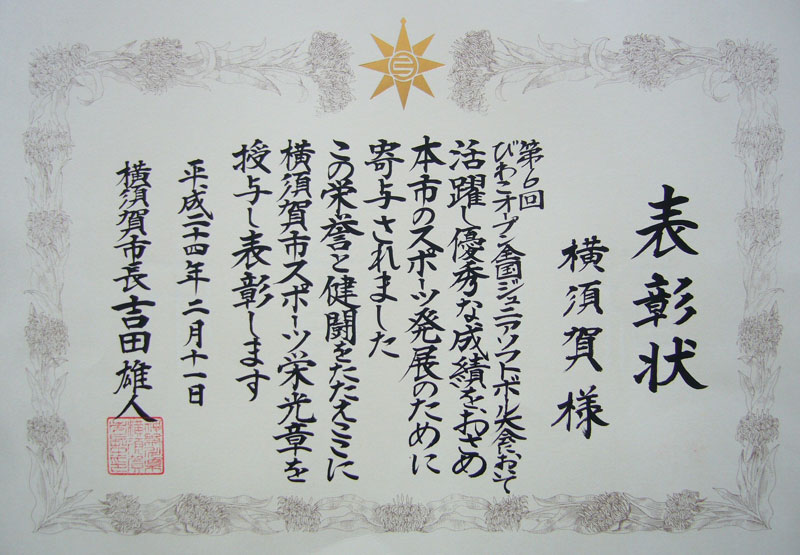 表彰状
横須賀様
第6回
びわこオープン全国ジュニアソフトボール大会において
活躍し優秀な成績をおさめ
本市のスポーツ発展のために
寄与されました
この栄誉と健闘をたたえここに
横須賀市スポーツ栄光章を
授与し表彰します
平成二十四年二月十一日
横須賀市長吉田雄人